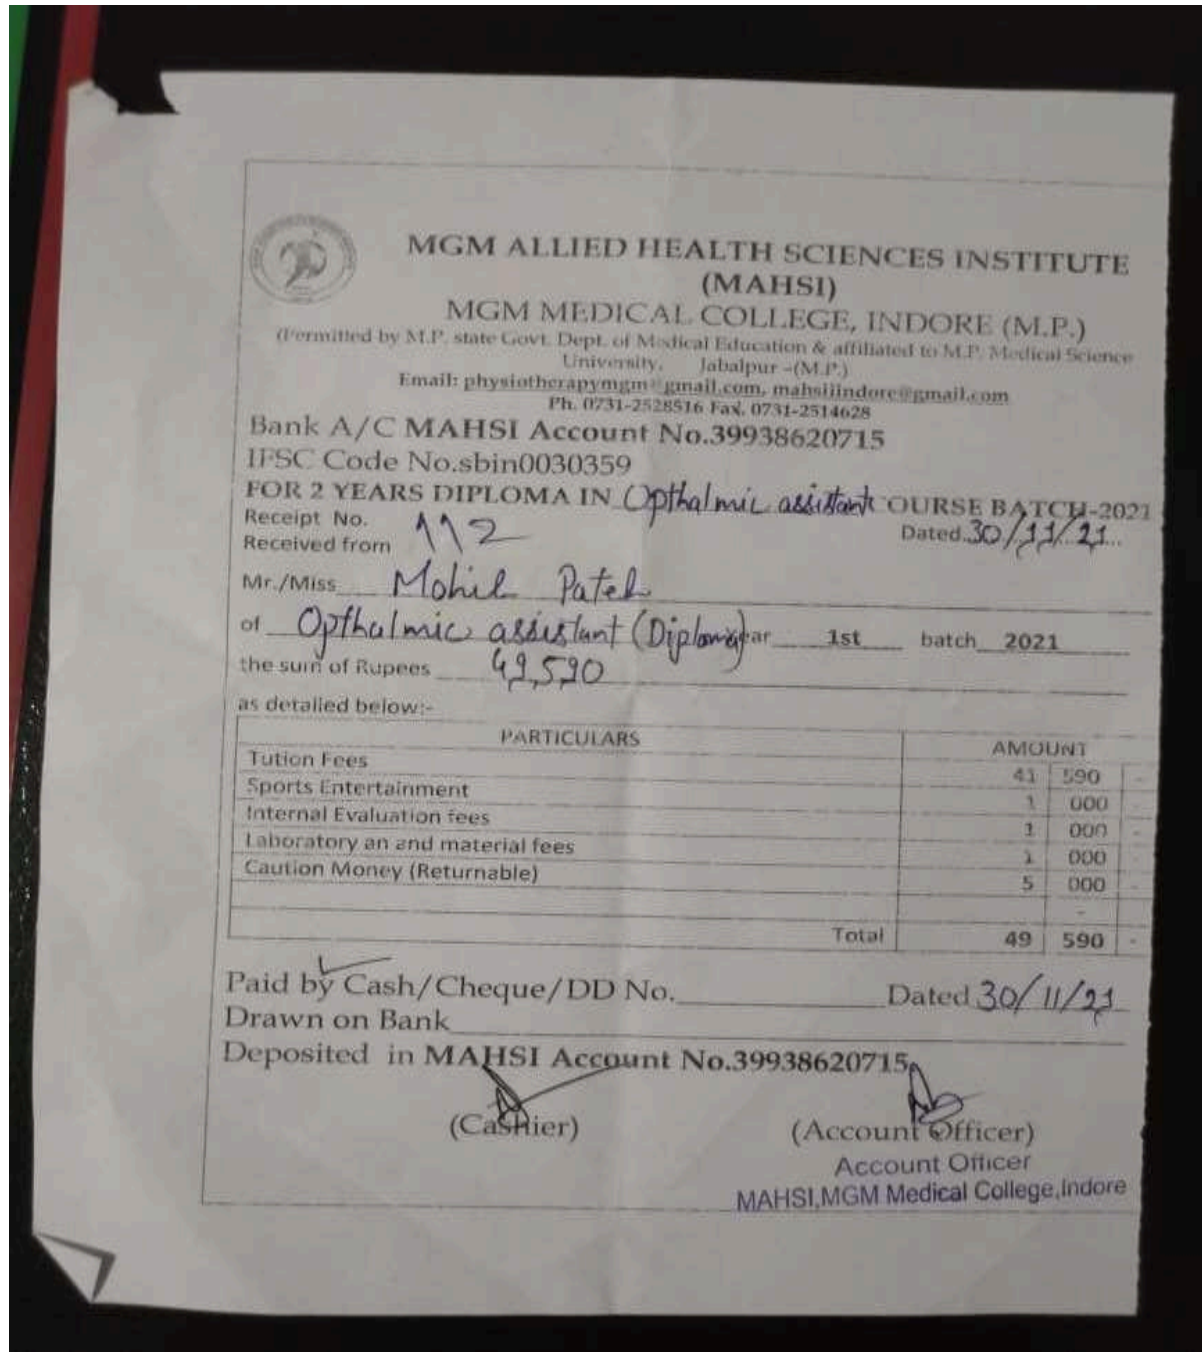 MGM ALLIED HEALTH SCIENCES INSTITUTE
(MAHSI)
MGM MEDICAL COLLEGE, INDORE (M.P.)
(Permitted by M.P. state Govt. Dept. of Medical Education & affiliated to M.P. Medical Science
University, Jabalpur -(M.P.)
Email: physiotherapymgm@gmail.com, mahsiiindore@gmail.com
Ph. 0731-2528516 Fax. 0731-2514628
Bank A/C MAHSI Account No.39938620715
IFSC Code No.sbin0030359
FOR 2 YEARS DIPLOMA IN Opthalmic assistant OURSE BATCH-2021
Receipt No. 112 Dated 30/11/21
Received from
Mr./Miss Mohit Patel
of Opthalmic assistant (Diploma) ar 1st batch 2021
the sum of Rupees 49,590
as detailed below:-
PARTICULARS AMOUNT
Tution Fees 41 590 -
Sports Entertainment 1 000 -
Internal Evaluation fees 1 000 -
Laboratory an and material fees 1 000 -
Caution Money (Returnable) 5 000 -
-
Total 49 590 -
Paid by Cash/Cheque/DD No. Dated 30/11/21
Drawn on Bank
Deposited in MAHSI Account No.39938620715
(Cashier) (Account Officer)
Account Officer
MAHSI,MGM Medical College,Indore